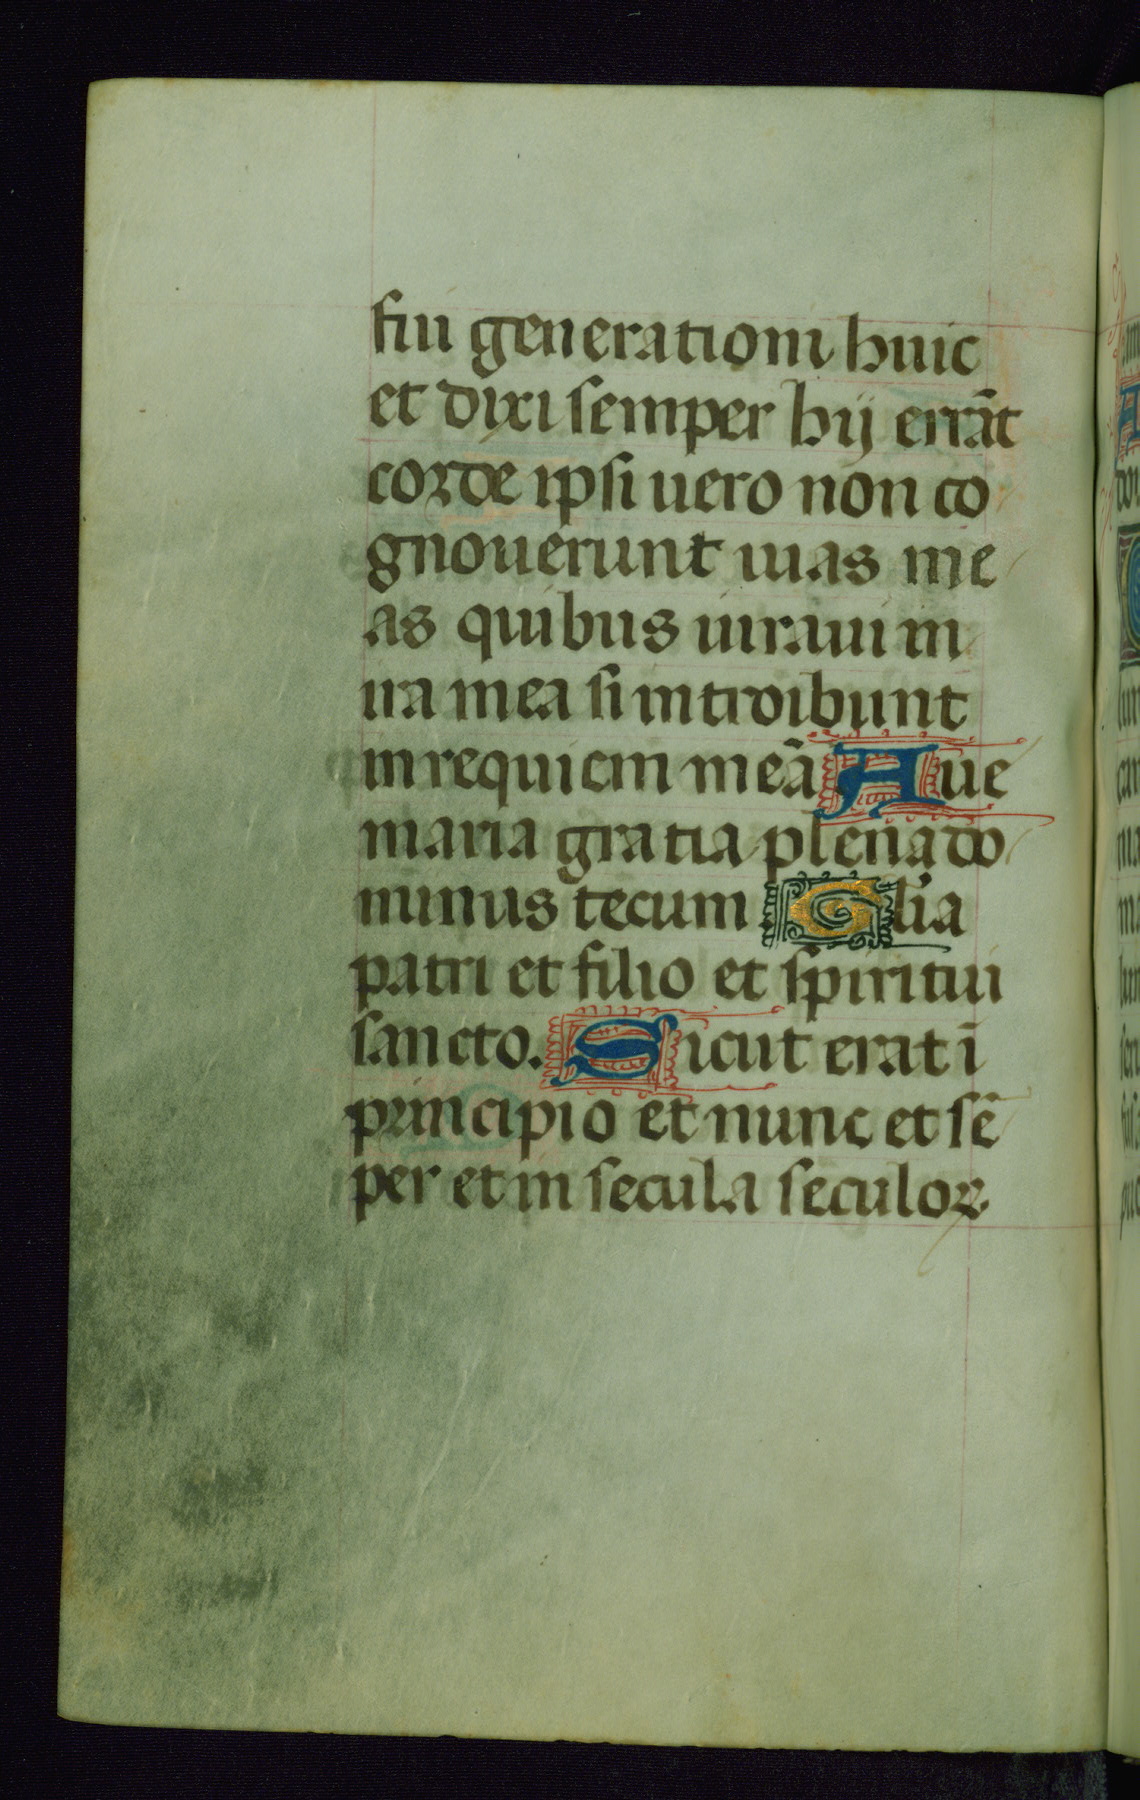 fui generationi huic
et dixi semper hij errāt
corde ipsi uero non co
gnouerunt uias me
as quibus iuraui in
ira mea si introibunt
in requiem meā Aue
maria gratia plena do
minus tecum Glīa
patri et filio et spiritui
sancto. Sicut erat ī
principio et nunc et sē
per et in secula seculoꝝ